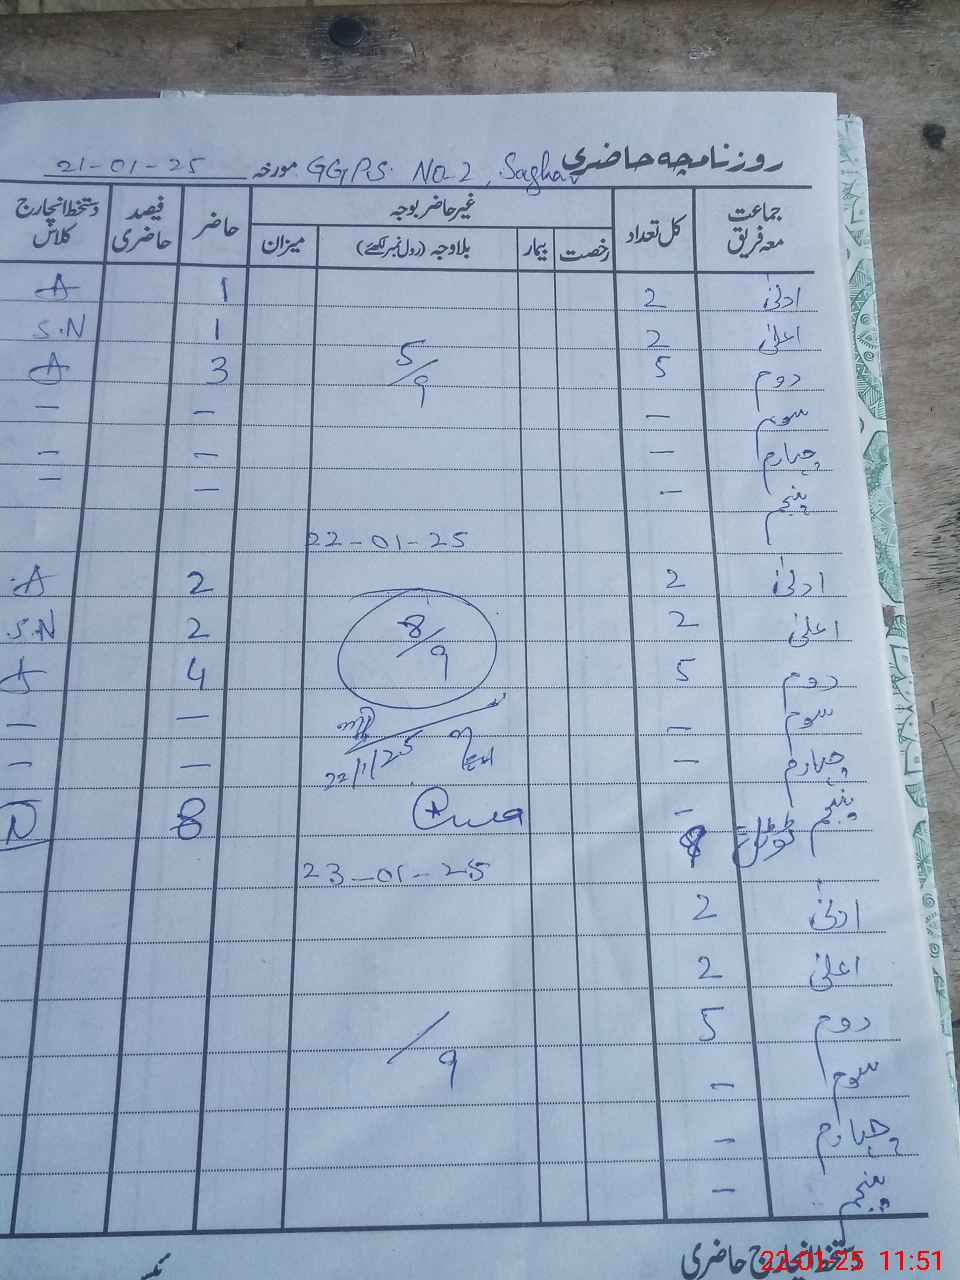 روزنامچہ حاضری GGPS. No 2, Saghar مورخہ 21-01-25
جماعت معہ فریق کل تعداد غیر حاضر بوجہ حاضر فیصد حاضری دستخط انچارج کلاس
رخصت بیمار بلاوجہ (رول نمبر لکھئے) میزان
ادنیٰ 2 1 A
اعلیٰ 2 1 S.N
دوم 5 5/9 3 A
سوم - - -
چہارم - - -
پنجم - - -
22-01-25
ادنیٰ 2 2 A
اعلیٰ 2 8/9 2 S.N
دوم 5 4 A
سوم - - -
چہارم - 22/1/25 - -
پنجم - 8 N
ٹوٹل
23-01-25
ادنیٰ 2
اعلیٰ 2
دوم 5 /9
سوم -
چہارم -
پنجم -
دستخط انچارج حاضری
22.01.25 11:51